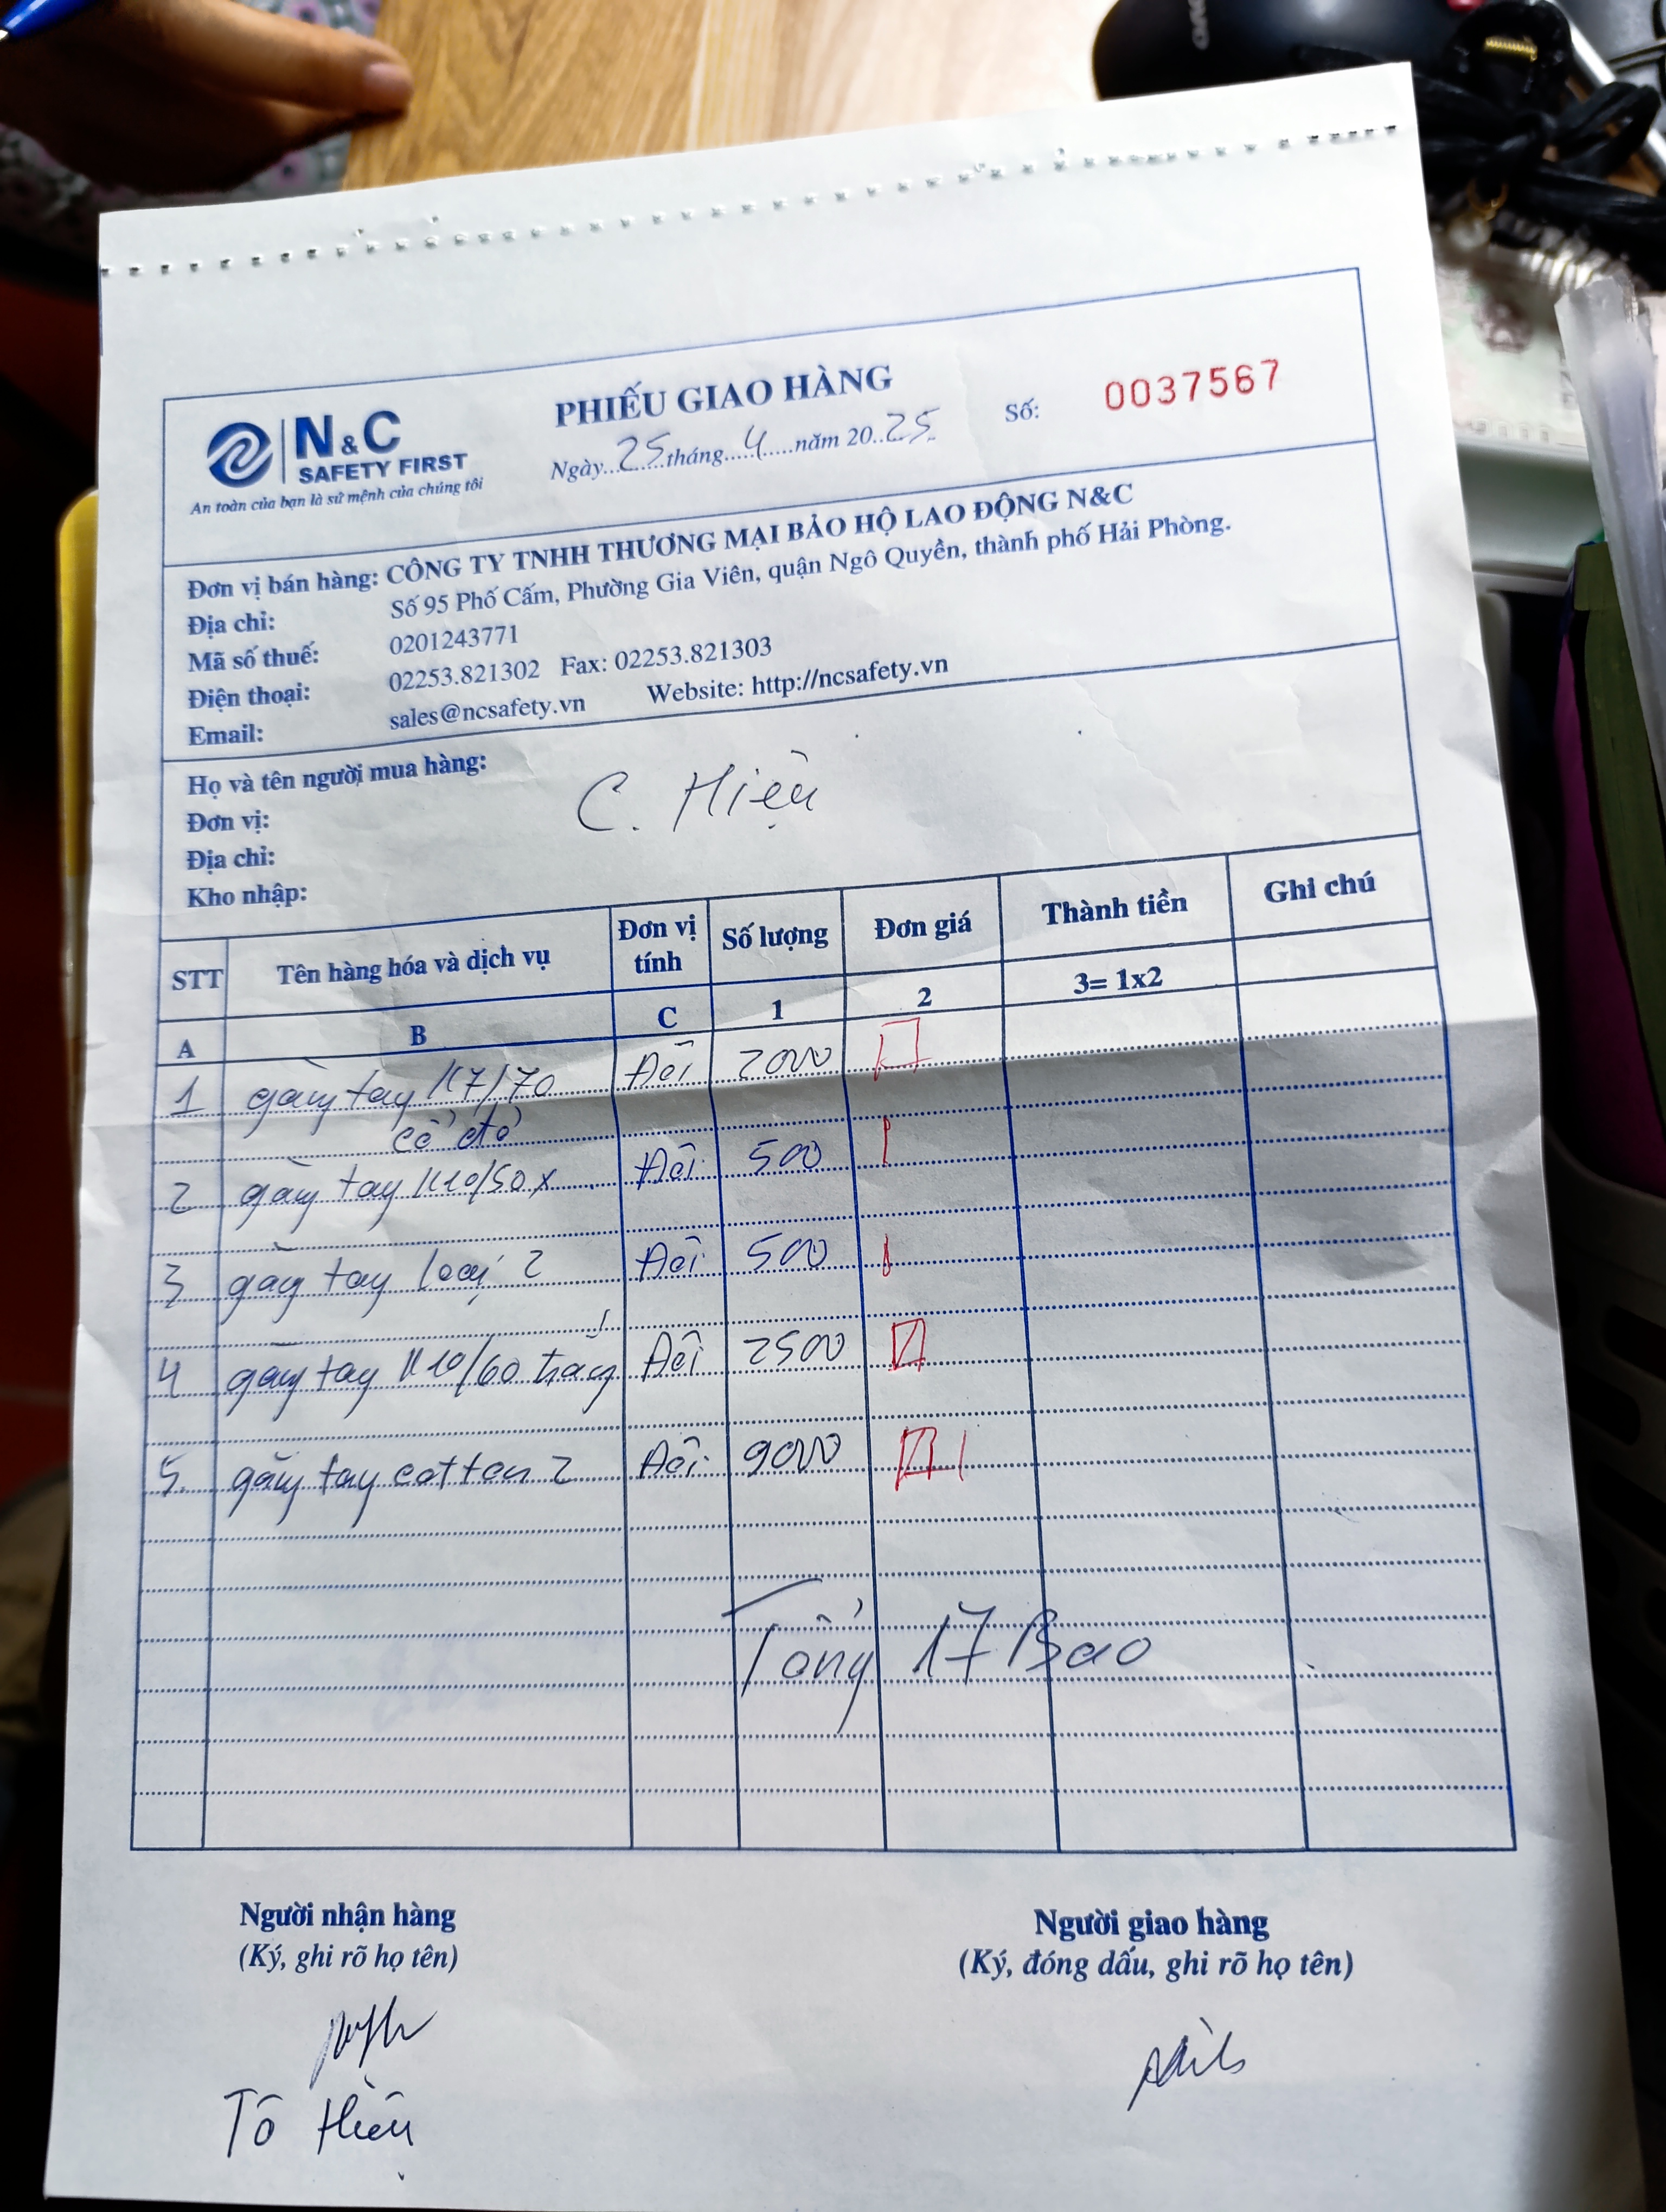 N&C
SAFETY FIRST
An toàn của bạn là sứ mệnh của chúng tôi
PHIẾU GIAO HÀNG
Ngày...25...tháng...4...năm 20..25..
Số: 0037567
Đơn vị bán hàng: CÔNG TY TNHH THƯƠNG MẠI BẢO HỘ LAO ĐỘNG N&C
Địa chỉ: Số 95 Phố Cấm, Phường Gia Viên, quận Ngô Quyền, thành phố Hải Phòng.
Mã số thuế: 0201243771
Điện thoại: 02253.821302 Fax: 02253.821303
Email: sales@ncsafety.vn Website: http://ncsafety.vn
Họ và tên người mua hàng: C. Hiệu
Đơn vị:
Địa chỉ:
Kho nhập:
STT Tên hàng hóa và dịch vụ Đơn vị tính Số lượng Đơn giá Thành tiền Ghi chú
A B C 1 2 3= 1x2
1 găng tay K7/70 Đôi 2000
cổ đỏ
2 găng tay K10/50 x Đôi 500
3 găng tay loại 2 Đôi 500
4 găng tay K10/60 trắng Đôi 2500
5. găng tay cotton 2 Đôi 9000
Tổng 17 Bao
Người nhận hàng
(Ký, ghi rõ họ tên)
Tô Hiệu
Người giao hàng
(Ký, đóng dấu, ghi rõ họ tên)